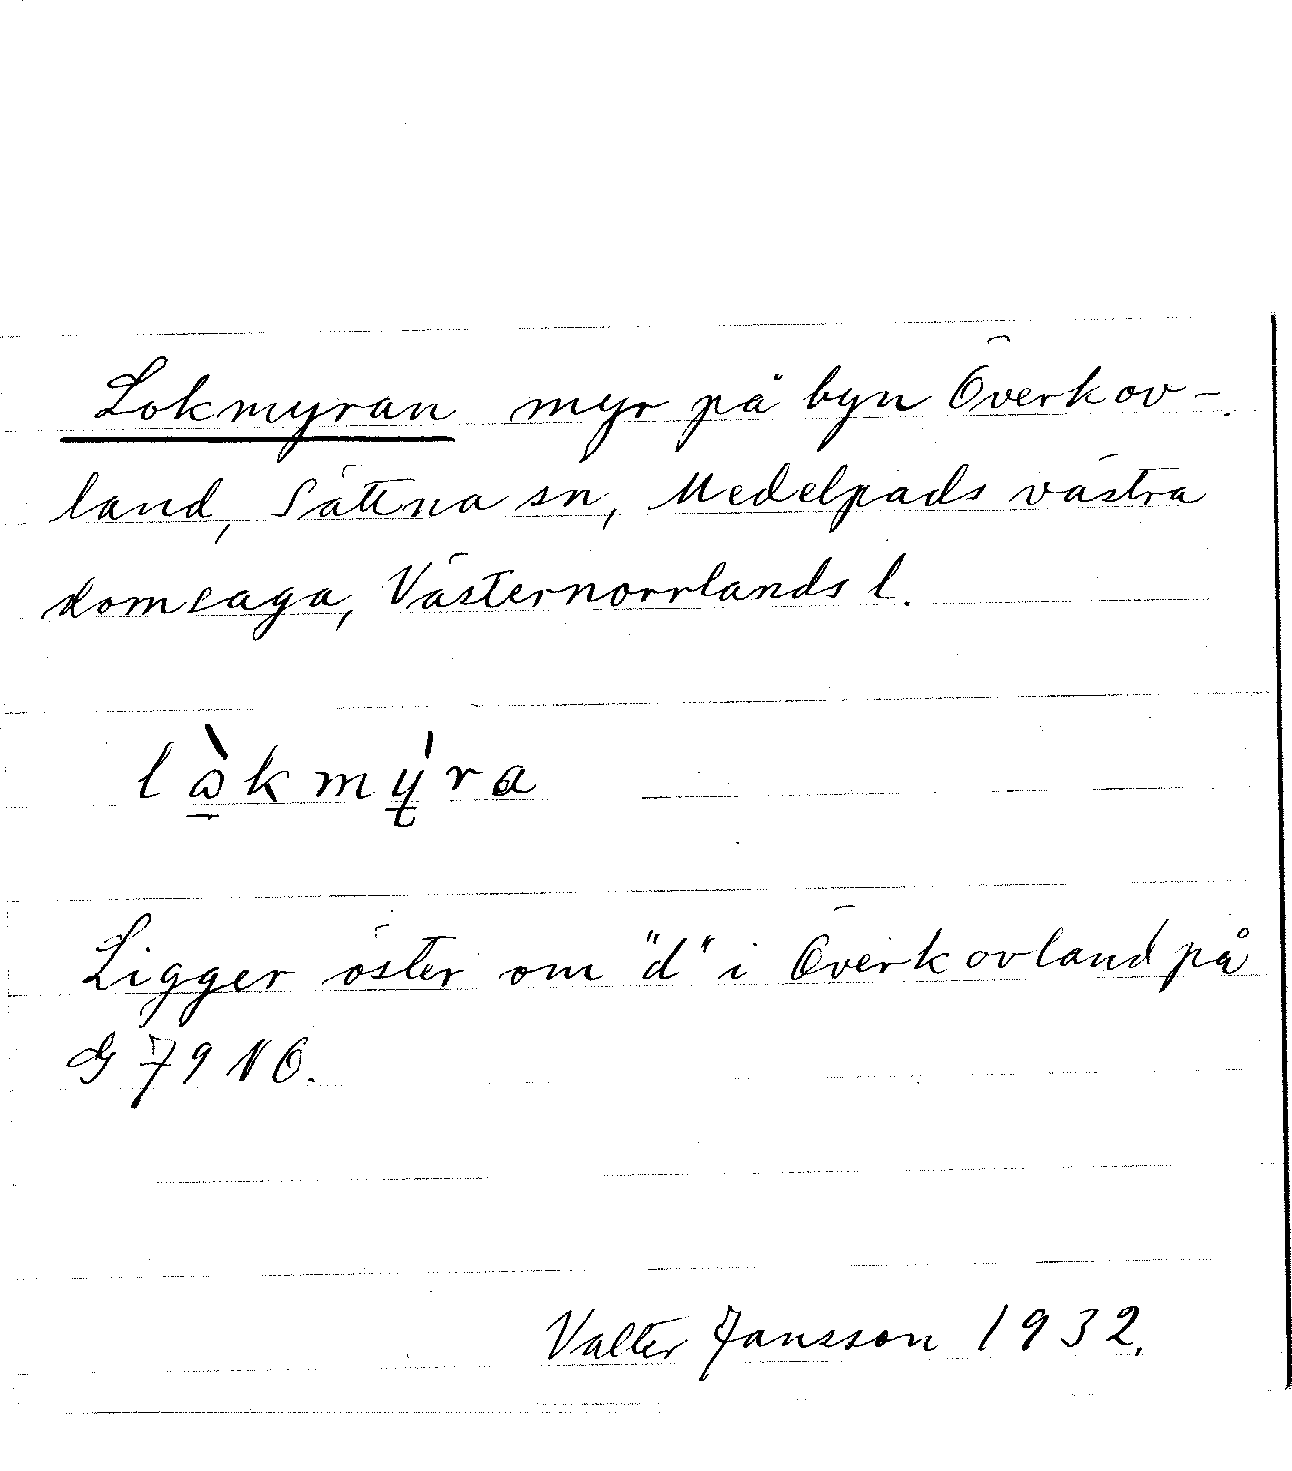 Lokmyran myr på byn Överkov-
land, Sättna sn, Medelpads västra
domsaga, Västernorrlands l.
lòkmýra
Ligger öster om "d" i Överkovland på
G 79 NO.
Valter Jansson 1932.